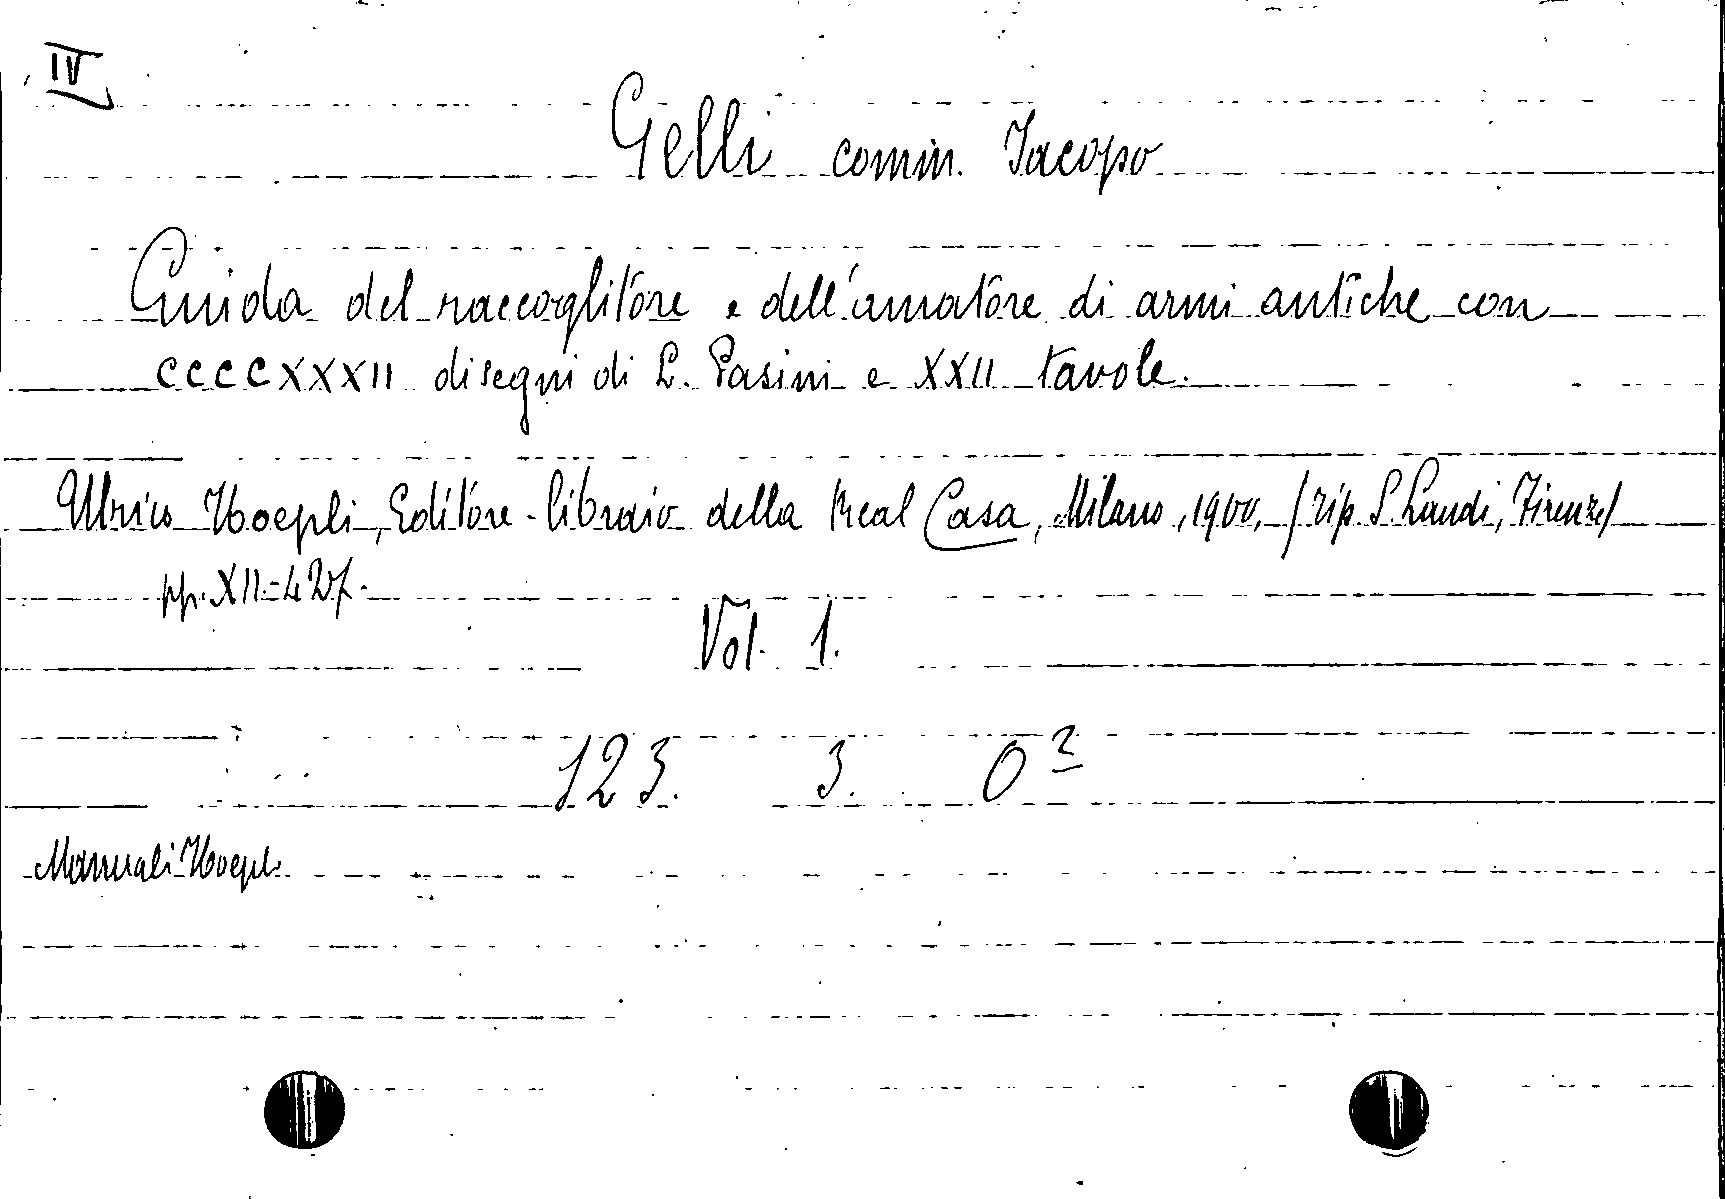 IV
Gelli comm. Jacopo
Guida del raccoglitore e dell'amatore di armi antiche con
CCCCXXXII disegni di L. Pasini e XXII tavole.
Ulrico Hoepli, Editore-libraio della Real Casa, Milano, 1900, (Tip. S. Landi, Firenze)
pp. XII-427.
Vol. 1.
123. 3. O²
Manuali Hoepli